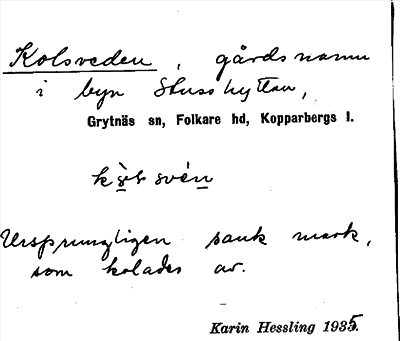 Kolsveden, gårdsnamn
i byn Stusshyttan,
Grytnäs sn, Folkare hd, Kopparbergs l.
Ursprungligen sank mark,
som kolades av.
Karin Hessling 1935.